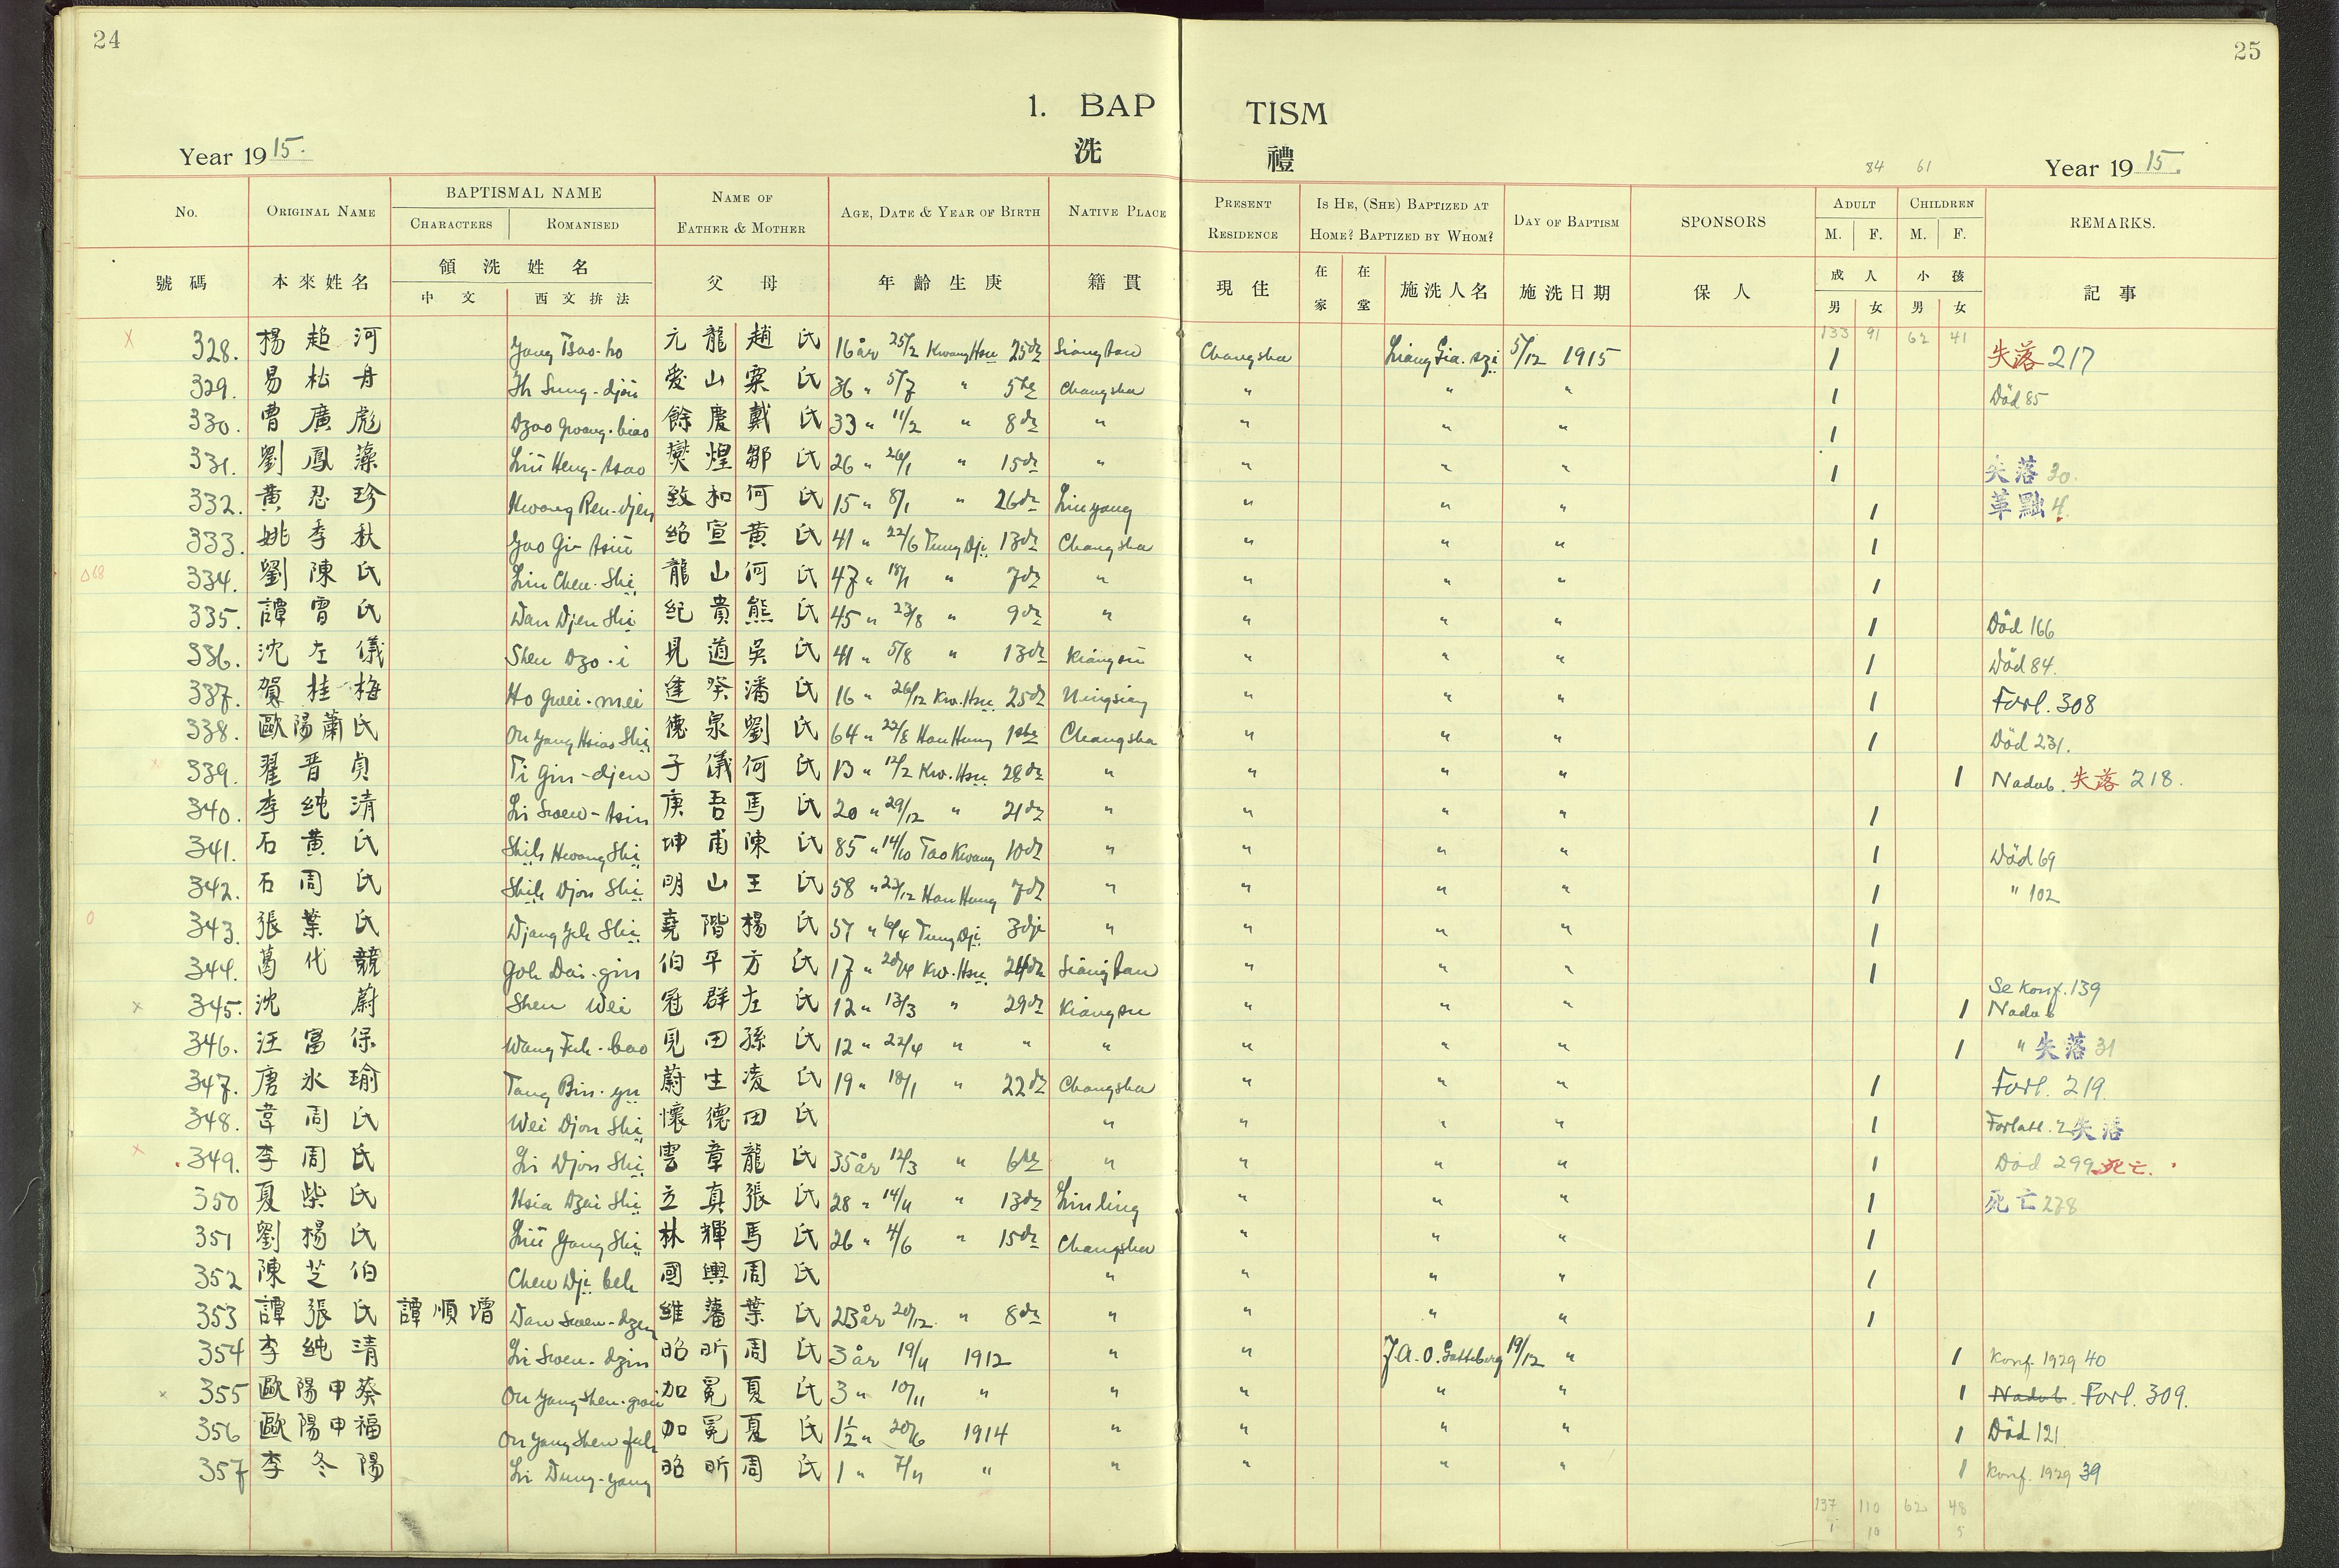 24
25
1. BAP TISM
洗 禮
Year 1915.
84 61
Year 1915.
No. ORIGINAL NAME BAPTISMAL NAME NAME OF FATHER & MOTHER AGE, DATE & YEAR OF BIRTH NATIVE PLACE PRESENT RESIDENCE IS HE, (SHE) BAPTIZED AT HOME? BAPTIZED BY WHOM? DAY OF BAPTISM SPONSORS ADULT CHILDREN REMARKS.
CHARACTERS ROMANISED M. F. M. F.
號碼 本來姓名 領洗姓名 父母 年齡生庚 籍貫 現住 在家 在堂 施洗人名 施洗日期 保人 成人 小孩 記事
中文 西文拚法 男 女 男 女
133 91 62 41
x 328. 楊趋河 Yang Tsao-ho 元龍 趙氏 16 år 25/2 Kwang Hsü 25dz Siangtan Changsha Liang Gia-szi 5/12 1915 1 失落 217
329. 易松舟 Ih Sung-djou 愛山 氏 36 " 5/7 " 5te Changsha " " " 1 Död 85
330. 曹廣彪 Dzao Gwang-biao 餘慶 戴氏 33 " 11/2 " 8dz " " " " 1
331. 劉鳳藻 Liu Heng-tsao 煌 鄒氏 26 " 26/1 " 15dz " " " " 1 失落 30.
332. 黄忍珍 Hwang Ren-djen 致和 何氏 15 " 8/1 " 26dz Liuyang " " " 1 革黜 4.
333. 姚季秋 Yao Gi-tsiu 紹宣 黄氏 41 " 22/6 Tung Dji 13dz Changsha " " " 1
Δ68 334. 劉陳氏 Liu Chen-Shi 龍山 何氏 47 " 18/1 " 7dz " " " " 1
335. 譚曾氏 Dan Djen Shi 紀貴 熊氏 45 " 23/8 " 9dz " " " " 1 Död 166
336. 沈左儀 Shen Dzo-i 見道 吳氏 41 " 5/8 " 13dz Kiangsu " " " 1 Död 84.
337. 賀桂梅 Ho Gwei-mei 逢癸 潘氏 16 " 26/12 Kw. Hsü 25dz Ningsiang " " " 1 Forl. 308
338. 歐陽蕭氏 Ou Yang Hsiao Shi 德泉 劉氏 64 " 22/8 Han Hung 1ste Changsha " " " 1 Död 231.
x 339. 翟晋貞 Ti Gin-djen 子儀 何氏 13 " 12/2 Kw. Hsü 28dz " " " " 1 Nadub. 失落 218.
340. 李純清 Li Swen-tsin 庚吾 馬氏 20 " 29/12 " 21dz " " " " 1
341. 石黄氏 Shih Hwang Shi 坤甫 陳氏 85 " 14/10 Tao Kwang 10dz " " " " 1 Död 69
342. 石周氏 Shih Djou Shi 明山 王氏 58 " 22/12 Han Hung 7dz " " " " 1 " 102
0 343. 張葉氏 Djang Yeh Shi 堯階 楊氏 51 " 6/4 Tung Dji 3dje " " " " 1
344. 葛代競 Goh Dai-gin 伯平 方氏 17 " 20/4 Kw. Hsü 24dz Siangtan " " " 1
x 345. 沈蔚 Shen Wei 冠群 左氏 12 " 13/3 " 29dz Kiangsu " " " 1 Se Konf. 139 Nadub
346. 汪富保 Wang Fuh-bao 見田 孫氏 12 " 22/4 " " " " " " 1 " 失落 31
347. 唐氷瑜 Tang Bin-yu 蔚生 凌氏 19 " 18/1 " 22dz Changsha " " " 1 Forl. 219.
348. 韋周氏 Wei Djou Shi 懷德 田氏 " " " " 1 Forlatt. 2 失落
x 349. 李周氏 Li Djou Shi 雲章 龍氏 35 år 12/3 " 6te " " " " 1 Död 299 死亡.
350 夏柴氏 Hsia Dzai Shi 立真 張氏 28 " 14/4 " 13dz Linling " " " 1 死亡 238
351 劉楊氏 Liu Yang Shi 林輝 馬氏 26 " 4/6 " 15dz Changsha " " " 1
352 陳芝伯 Chen Dji beh 國興 周氏 " " " " 1
353 譚張氏 譚順增 Dan Swen-dzen 維藩 葉氏 23 år 20/12 " 8dz " " " " 1
354 李純清 Li Swen-dzin 昭昕 周氏 3 år 19/4 1912 " " J.A.O. Gotteberg 19/12 " 1 Konf. 1929 40
x 355 歐陽申葵 Ou Yang Shen-gwei 加冕 夏氏 3 " 10/11 " " " " " 1 Nadub. Forl. 309.
356 歐陽申福 Ou Yang Shen fuh 加冕 夏氏 1½ " 20/6 1914 " " " " 1 Död 121
357 李冬陽 Li Dung-yang 昭昕 周氏 1 " 7/11 " " " " " 1 Konf. 1929 39
137 110 62 48
1 10 5